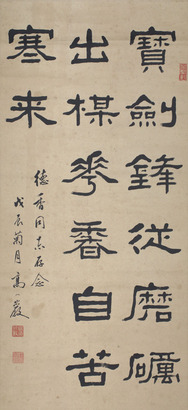 寶劍鋒從磨礪
出楳花香自苦
寒来
德香同志存念
戊辰菊月高一嚴